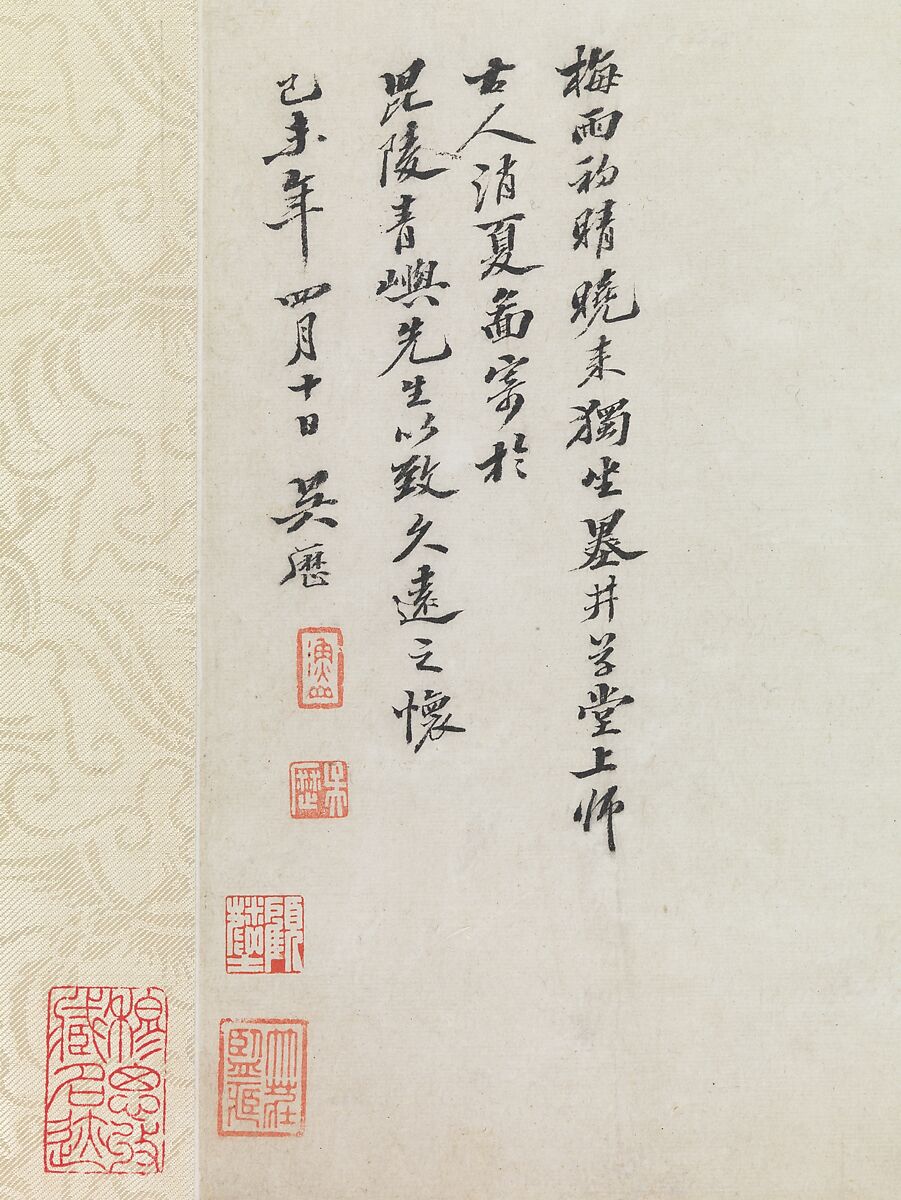 梅雨初晴曉来獨坐墨井草堂上师
古人消夏啚寄於
毘陵青嶼先生以致久遠之懷
己未年四月十日 吳歷
漁山
吴歷